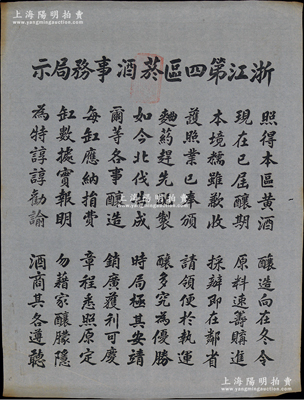 上海陽明拍賣
SHANGHAI YANGMING AUCTION
浙江第四區菸酒事務局示
照得本區黃酒 釀造向在冬令
現在已屆釀期 原料速籌購進
本境糯雖歉收 採辦即在鄰省
護照業已奉頒 請領便於執運
麯葯趕先製 釀多究為優勝
如今北伐告成 時局極其安靖
爾等各事釀造 銷廣獲利可慶
每缸應納捐費 章程悉照原定
缸數據實報明 勿藉家釀朦隱
為特諄諄勸諭 酒商其各遵聽
上海陽明拍賣
SHANGHAI YANGMING AUCTION